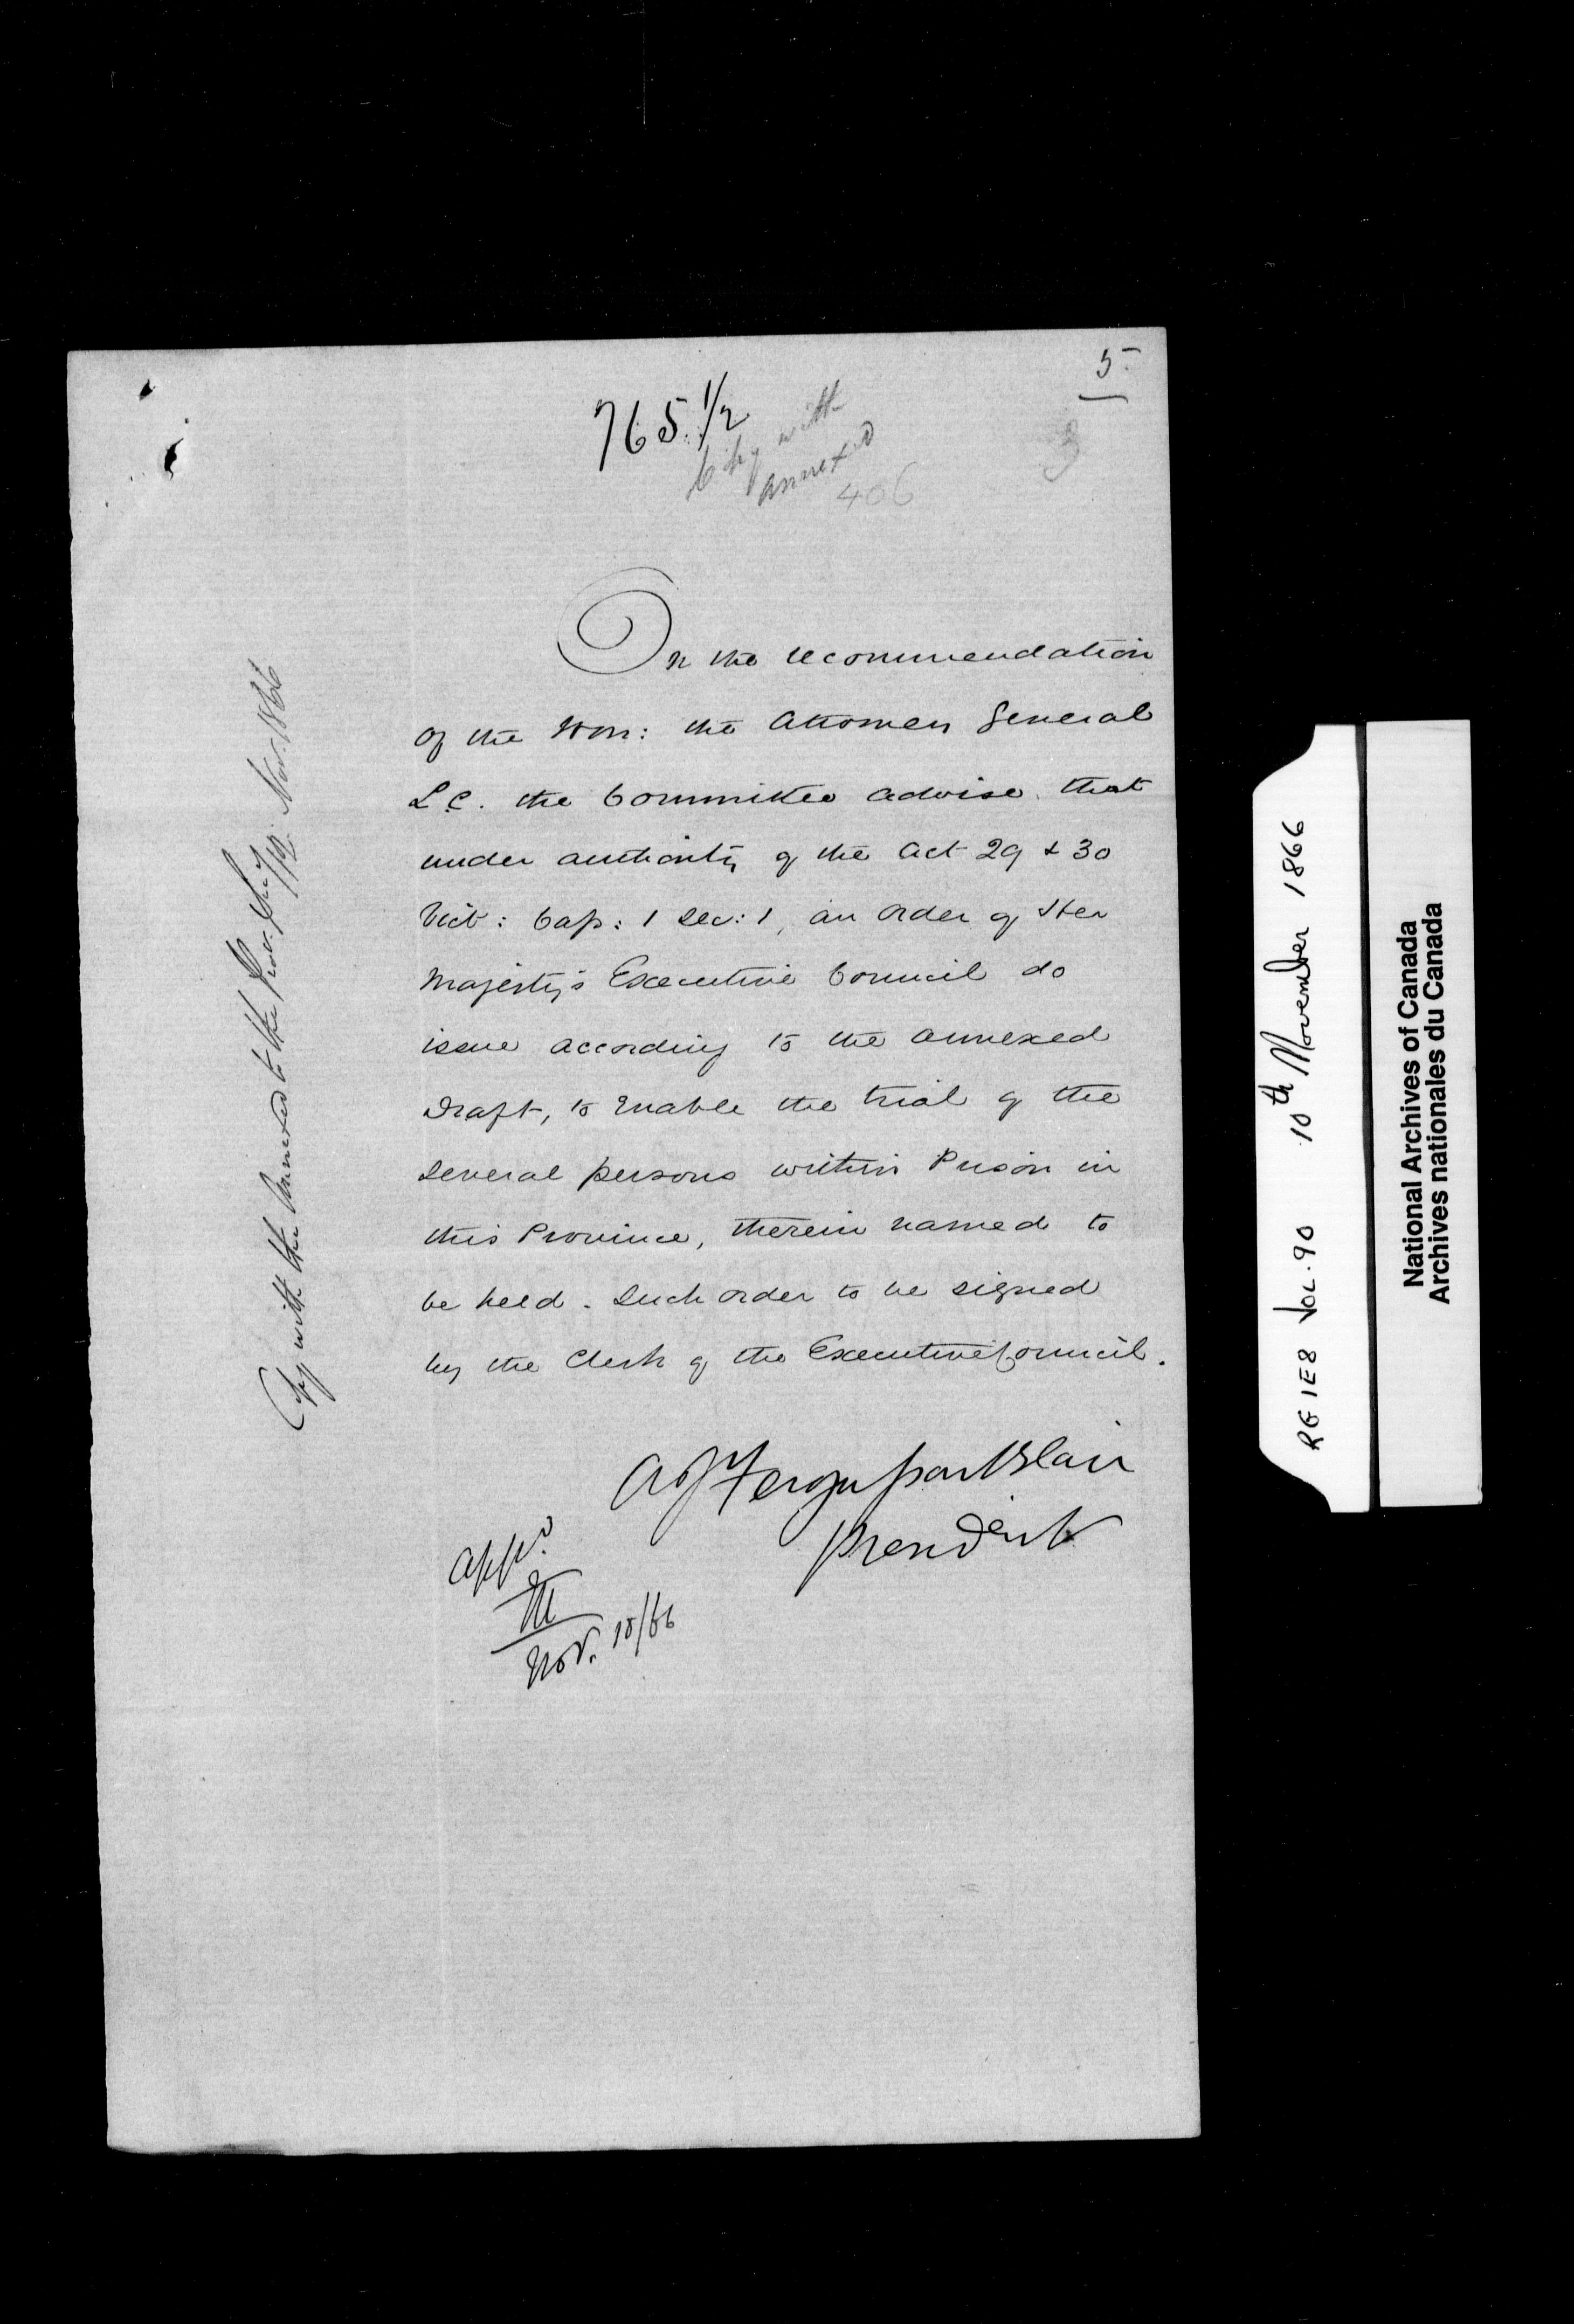 5.
765.1/2
Copy with
annexed
406
3
On the recommendation
of the Hon: the Attorney General
L.C. the Committee advise that
under authority of the Act 29 & 30
Vict: Cap: 1 Sec: 1, an Order of Her
Majesty's Executive Council do
issue according to the annexed
Draft, to enable the trial of the
several persons within Prison in
this Province, therein named to
be held. Such order to be signed
by the Clerk of the Executive Council.
A J Fergusson Blair
President
Appd.
M
Nov. 10/66
Copy with the Annexed to the Prov. Secy 10. Nov. 1866
RG1E8 VOL. 90 10th November 1866
National Archives of Canada
Archives nationales du Canada